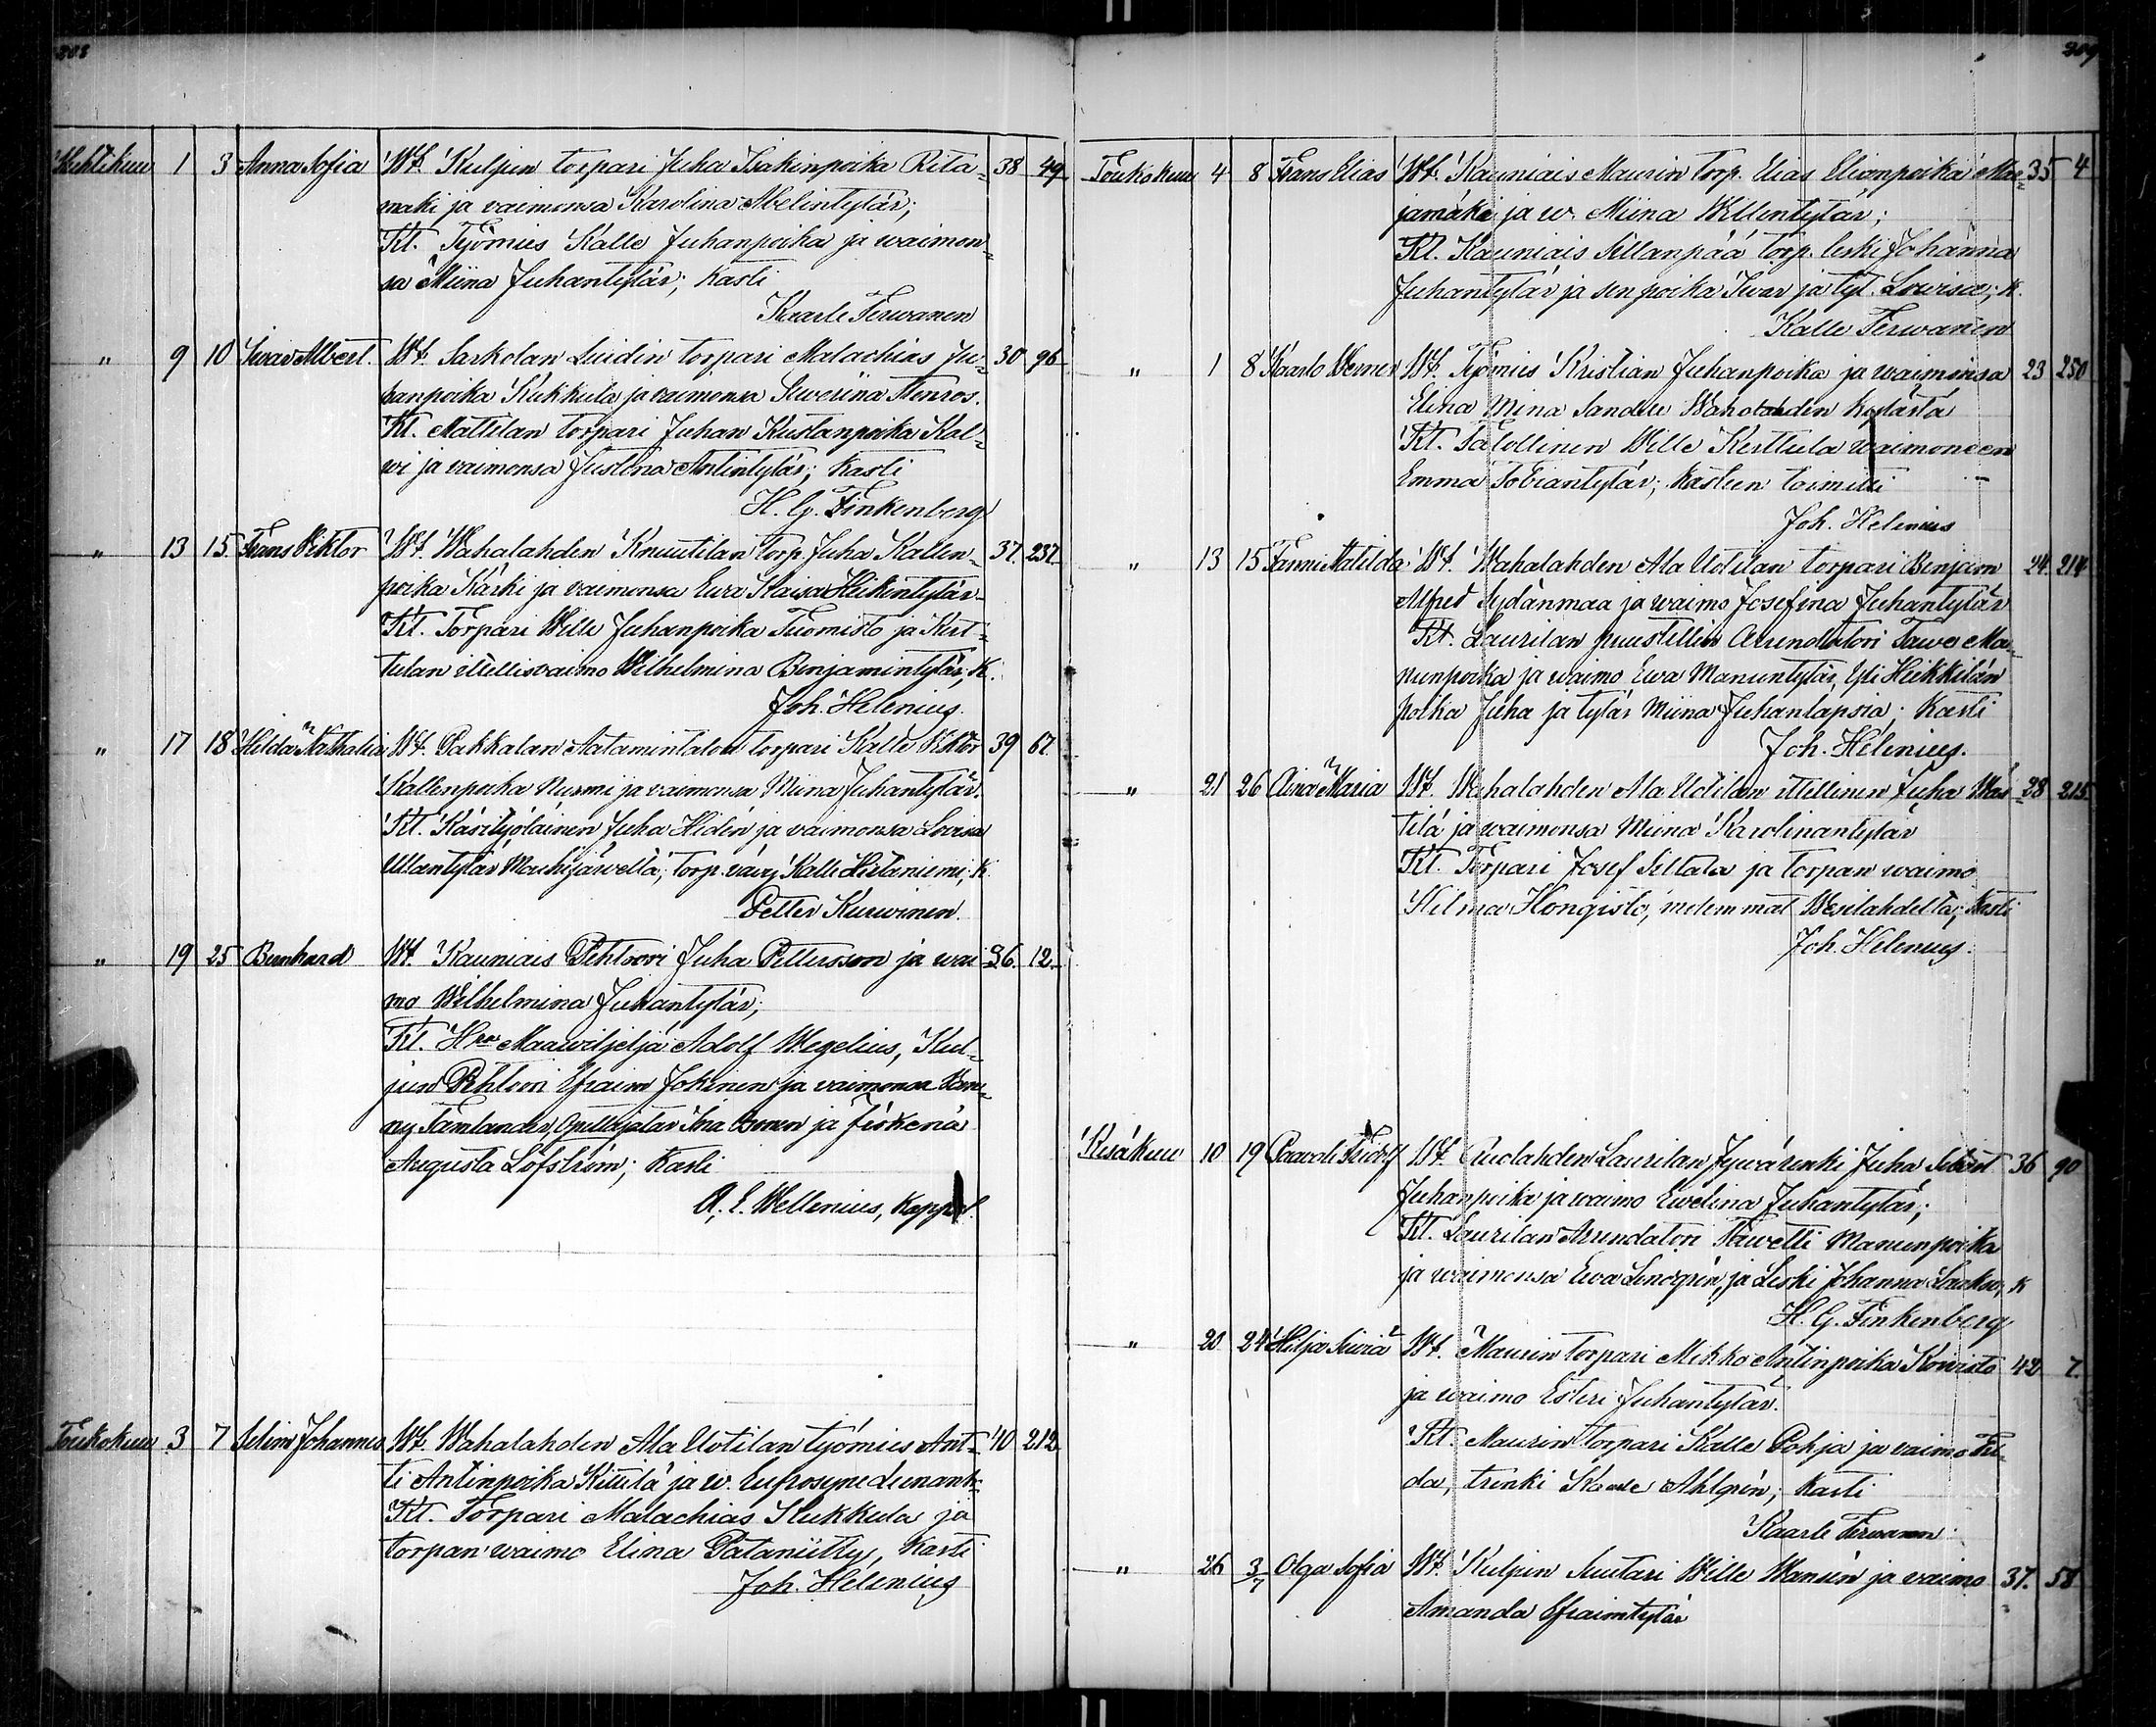 208
Huhtikuu 1 3 Anna Sofia Wt. Kulpin torpari Juha Isakinpoika Rita- 38 49
mäki ja vaimonsa Karolina Abelintytär;
Kt. Työmies Kalle Juhanpoika ja waimon-
sa Miina Juhantytär; kasti
Kaarle Terwanen
" 9 10 Iwar Albert. Wt. Sarkolan Luidin torpari Malachias Ju- 30 96
hanpoika Kukkula ja vaimonsa Sewerina Stenros.
Kt. Mattilan torpari Juhan Kustanpoika Kal-
wi ja vaimonsa Justina Antintytär; kasti
H. G. Finkenberg
" 13 15 Frans Viktor Wt. Wahalahden Knuutilan torp. Juha Kallen- 37. 237.
poika Kärki ja vaimonsa Ewa Kaisa Heikintytär
Kt. Torpari Wille Juhanpoika Tuomisto ja Kert-
tulan itellisvaimo Wilhelmina Benjamintytär; K.
Joh. Helenius.
" 17 18 Hilda Nathalia Wt. Pakkalan Aatamintalon torpari Kalle Viktor 39 67.
Kallenpoika Nurmi ja vaimonsa Miina Juhantytär.
Kt. Käsityöläinen Juha Hidén ja vaimonsa Lovisa
Ullantytär Mouhijärweltä; torp. vävy Kalle Hietaniemi; K.
Petter Kurwinen.
" 19 25 Bernhard Wt. Kauniais Pehtoori Juha Pettersson ja wai- 36. 12.
mo Wilhelmina Juhantytär;
Kt. Hra Maawiljeljä Adolf Wegelius, Kul-
jun Pehtoori Efraim Jokinen ja vaimonsa
Tamlander, Opettajatar ja fröken
Augusta Löfström; kasti
A. E. Wellenius, Kappal.
Toukokuu 3 7 Selim Johannes Wt. Wahalahden Ala Uotilan työmies Ant- 40 212
ti Antinpoika Kittilä ja w. Eufrosyne
Kt. Torpari Malachias Kukkula ja
torpan waimo Elina Pataniitty, kasti
Joh. Helenius
209
Toukokuu 4 8 Frans Elias Wt. Kauniais Maurin torp. Elias Elianpoika Ma- 35 4
jamäki ja w. Miina Willentytär;
Kt. Kauniais Sillanpää torp. leski Johanna
Juhantytär ja sen poika Iwar ja tyt. Lowisa; K.
Kalle Terwanen
" 1 8 Kaarlo Werner Wt. Työmies Kristian Juhanpoika ja waimonsa 23 250
Elina Mina Sandra Wahalahden kylästä
Kt. Talollinen Wille Kerttula waimoneen
Emma Tobiantytär; kasteen toimitti
Joh. Helenius
" 13 15 Fanni Matilda Wt. Wahalahden Ala Uotilan torpari Benjam 24. 214
Alfred Sydänmaa ja waimo Josefina Juhantytär
Kt. Laurilan puustellin Arrendatori Tawe Ma-
nunpoika ja waimo Ewa Manuntytär, Yli Heikkilän
poika Juha ja tytär Miina Juhanlapsia; kasti
Joh. Helenius.
" 21 26 Aina Maria Wt. Wahalahden Ala Uotilan itellinen Juha Mat- 28 215.
tilä ja waimonsa Miina Karolinantytär
Kt. Torpari Josef Siltala ja torpan waimo
Hilma Hongisto, molemmat Wesilahdelta; kasti
Joh. Helenius.
Kesäkuu 10 19 Paavali Fridolf Wt. Laurilan Jywärenki Juha 36 90
Juhanpoika ja waimo Ewelina Juhantytär;
Kt. Laurilan Arrendatori Tawetti Manunpoika
ja waimonsa Ewa Lindgrén, ja Leski Johanna Laakso; K
H. G. Finkenberg
" 20 24 Hilja Siviä Wt. Maurin torpari Mikko Antinpoika Koivisto 42 7.
ja waimo Esteri Juhantytär.
Kt. Maurin torpari Kalle Pohja ja vaimo Fre-
da, trenki Kaarle Ahlgrén; kasti
Kaarle Terwanen
" 26 3/7 Olga Sofia Wt. Kulpin Suutari Wille Wansén ja vaimo 37. 58
Amanda Efraimtytär